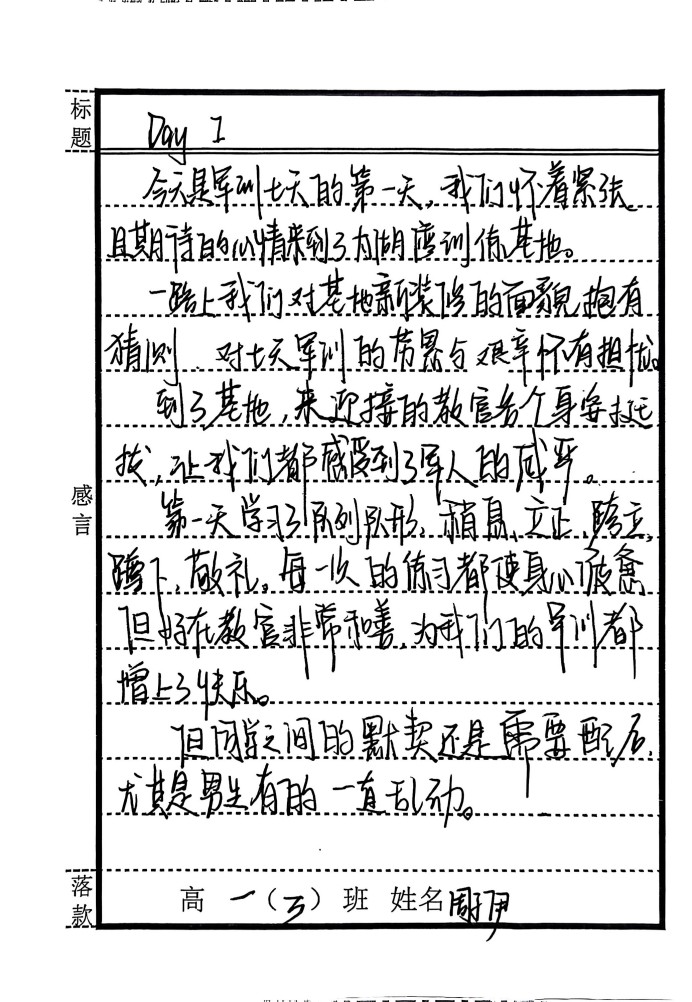 标题
Day 1
今天是军训七天的第一天，我们怀着紧张
且期待的心情来到了内湖湾训练基地。
一路上我们对基地新装修的面貌抱有
猜测，对七天军训的劳累与艰辛怀有担忧。
到了基地，来迎接的教官各个身姿挺
拔，让我们都感受到了军人的威严。
感言
第一天学习了队列队形，稍息、立正、跨立、
蹲下、敬礼。每一次的练习都使身心疲惫
但好在教官非常和善，为我们的军训都
增上了快乐。
但同学之间的默契还是需要配合，
尤其是男生有的一直乱动。
落款
高一（3）班 姓名周子伊